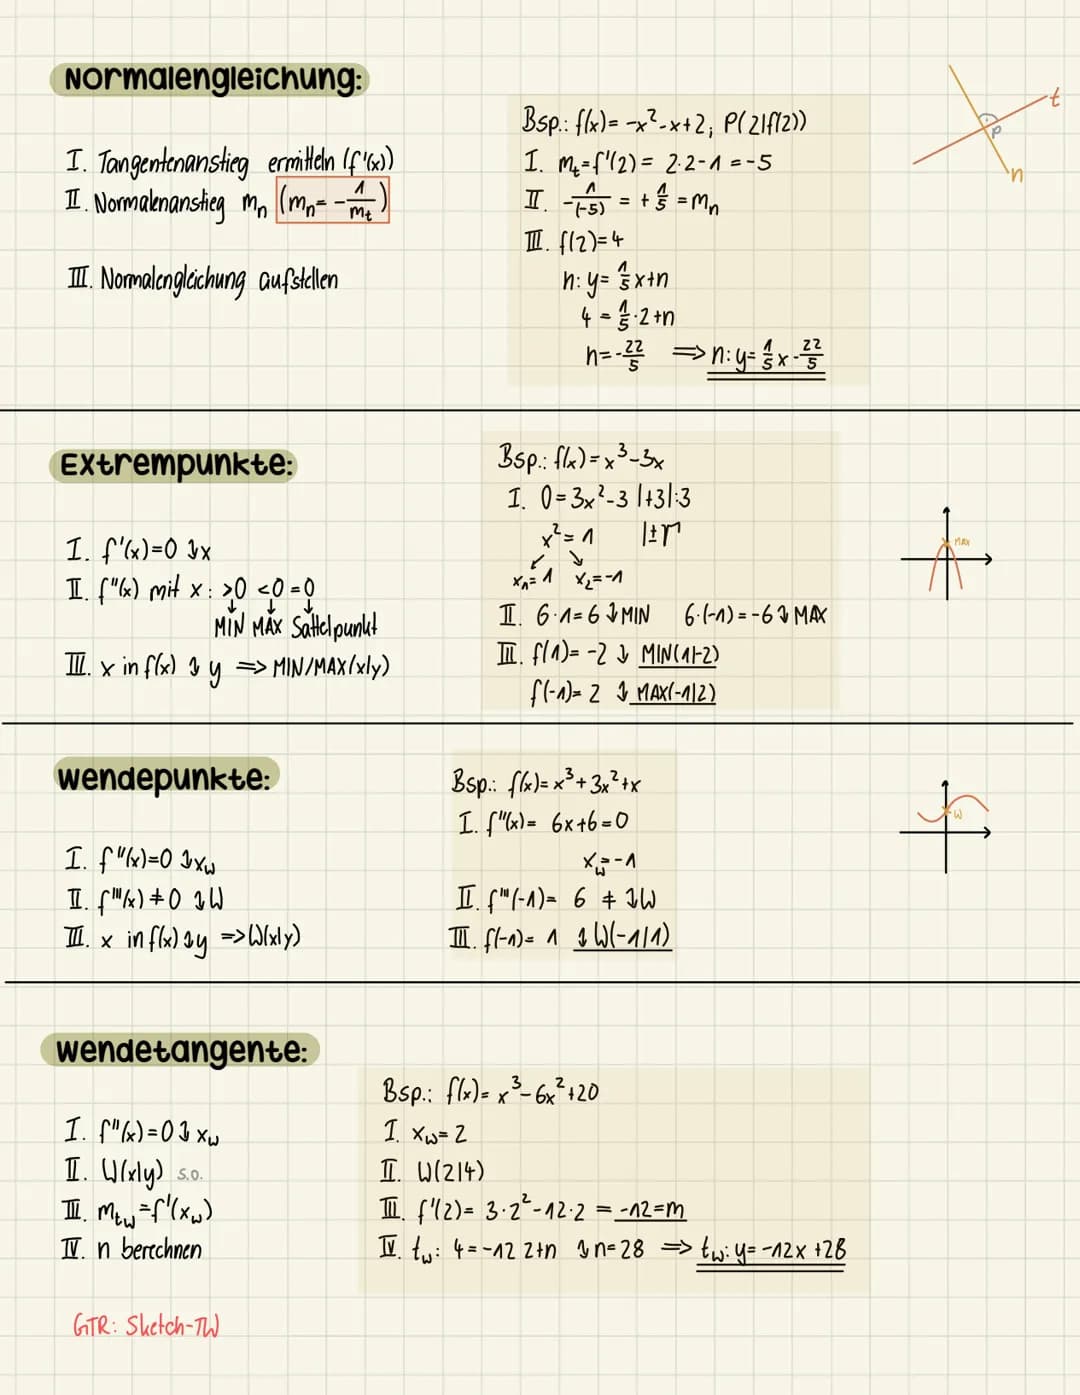 Normalengleichung:
I. Tangentenanstieg ermitteln (f'(x))
II. Normalenanstieg mₙ (mₙ = -1/mₜ)
III. Normalengleichung aufstellen
Bsp.: f(x) = -x²-x+2; P(2|f(2))
I. mₜ=f'(2) = 2·2-1 = -5
II. -1/(-5) = +1/5 = mₙ
III. f(2)=4
n: y= 1/5 x+n
4 = 1/5 ·2+n
n=-22/5 ⇒ n: y= 1/5 x -22/5
t
P
n
Extrempunkte:
I. f'(x)=0 ↯x
II. f"(x) mit x: >0 <0 =0
↓ ↓ ↓
MIN MAX Sattelpunkt
III. x in f(x) ↯ y ⇒ MIN/MAX(x|y)
Bsp.: f(x) = x³-3x
I. 0=3x²-3 |+3|:3
x²=1 |±√
x₁=1 x₂=-1
II. 6·1=6 ↯ MIN 6·(-1)=-6 ↯ MAX
III. f(1)= -2 ↯ MIN(1|-2)
f(-1)= 2 ↯ MAX(-1|2)
MAX
Wendepunkte:
I. f"(x)=0 ↯xw
II. f'''(x) ≠ 0 ↯W
III. x in f(x) ↯y ⇒ W(x|y)
Bsp.: f(x)= x³+3x²+x
I. f"(x)= 6x+6=0
xw=-1
II. f'''(-1)= 6 ≠ ↯W
III. f(-1)= 1 ↯ W(-1|1)
W
Wendetangente:
I. f"(x)=0 ↯ xw
II. W(x|y) s.o.
III. mtw=f'(xw)
IV. n berechnen
Bsp.: f(x)= x³-6x²+20
I. xw=2
II. W(2|4)
III. f'(2)= 3·2²-12·2 = -12=m
IV. tw: 4=-12 2+n ↯ n=28 ⇒ tw: y= -12x +28
GTR: Sketch-TW